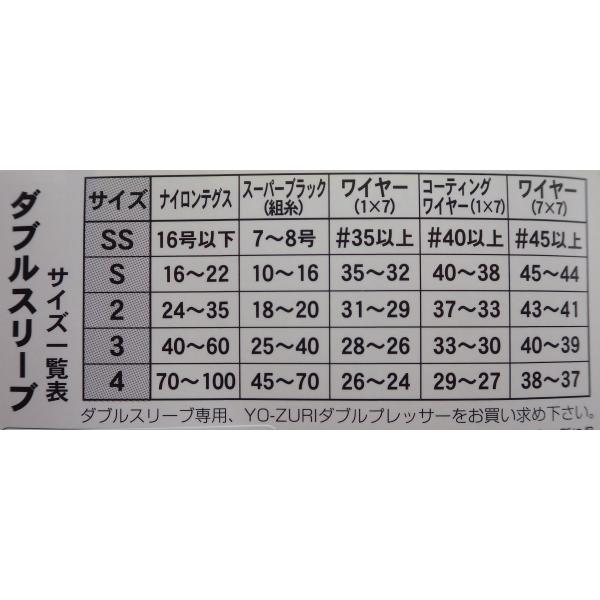 ダブルスリーブ
サイズ一覧表
サイズ ナイロンテグス スーパーブラック(組糸) ワイヤー(1×7) コーティングワイヤー(1×7) ワイヤー(7×7)
SS 16号以下 7〜8号 #35以上 #40以上 #45以上
S 16〜22 10〜16 35〜32 40〜38 45〜44
2 24〜35 18〜20 31〜29 37〜33 43〜41
3 40〜60 25〜40 28〜26 33〜30 40〜39
4 70〜100 45〜70 26〜24 29〜27 38〜37
ダブルスリーブ専用、YO-ZURIダブルプレッサーをお買い求め下さい。